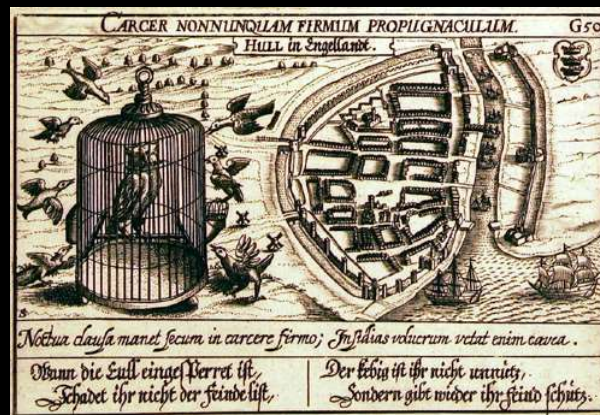 CARCER NONNUNQUAM FIRMUM PROPUGNACULUM. G50
HULL in Engellandt.
8
Noctua clausa manet secura in carcere firmo; Insidias volucrum vetat enim cavea.
Wann die Eull eingesperret ist,
Schadet ihr nicht der feinde list,
Der kebig ist ihr nicht unnütz,
Sondern gibt wider ihr feind schütz.